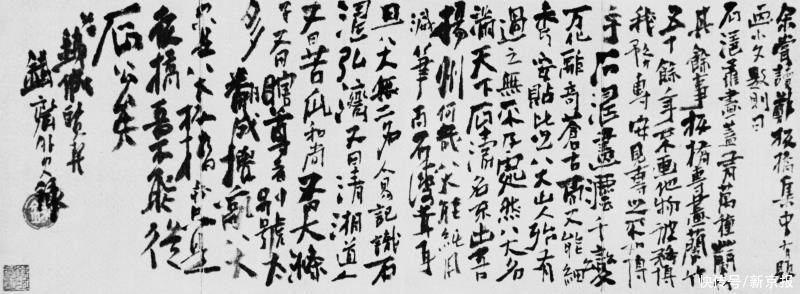 余嘗讀鄭板橋集中有題
画小文數則曰
石濤善畫盖有萬種蘭竹
其餘事板橋專畫蘭竹
五十餘年不畫他物彼務博
我務專安見專之不如博
乎石濤畫法千變
万化離奇蒼古而又能細
秀妥貼比之八大山人殆有
過之無不及處然八大名
滿天下石濤名不出吾
揚州何哉八大能純用
減筆而石濤茸耳
且八大無二名人易記識石
濤弘濟又曰清湘道人
又曰苦瓜和尚又曰大滌
子又曰瞎尊者別號太
多翻成擾亂八大
只是八大板橋亦只是
板橋吾不能從
石公矣
快传号/新京报